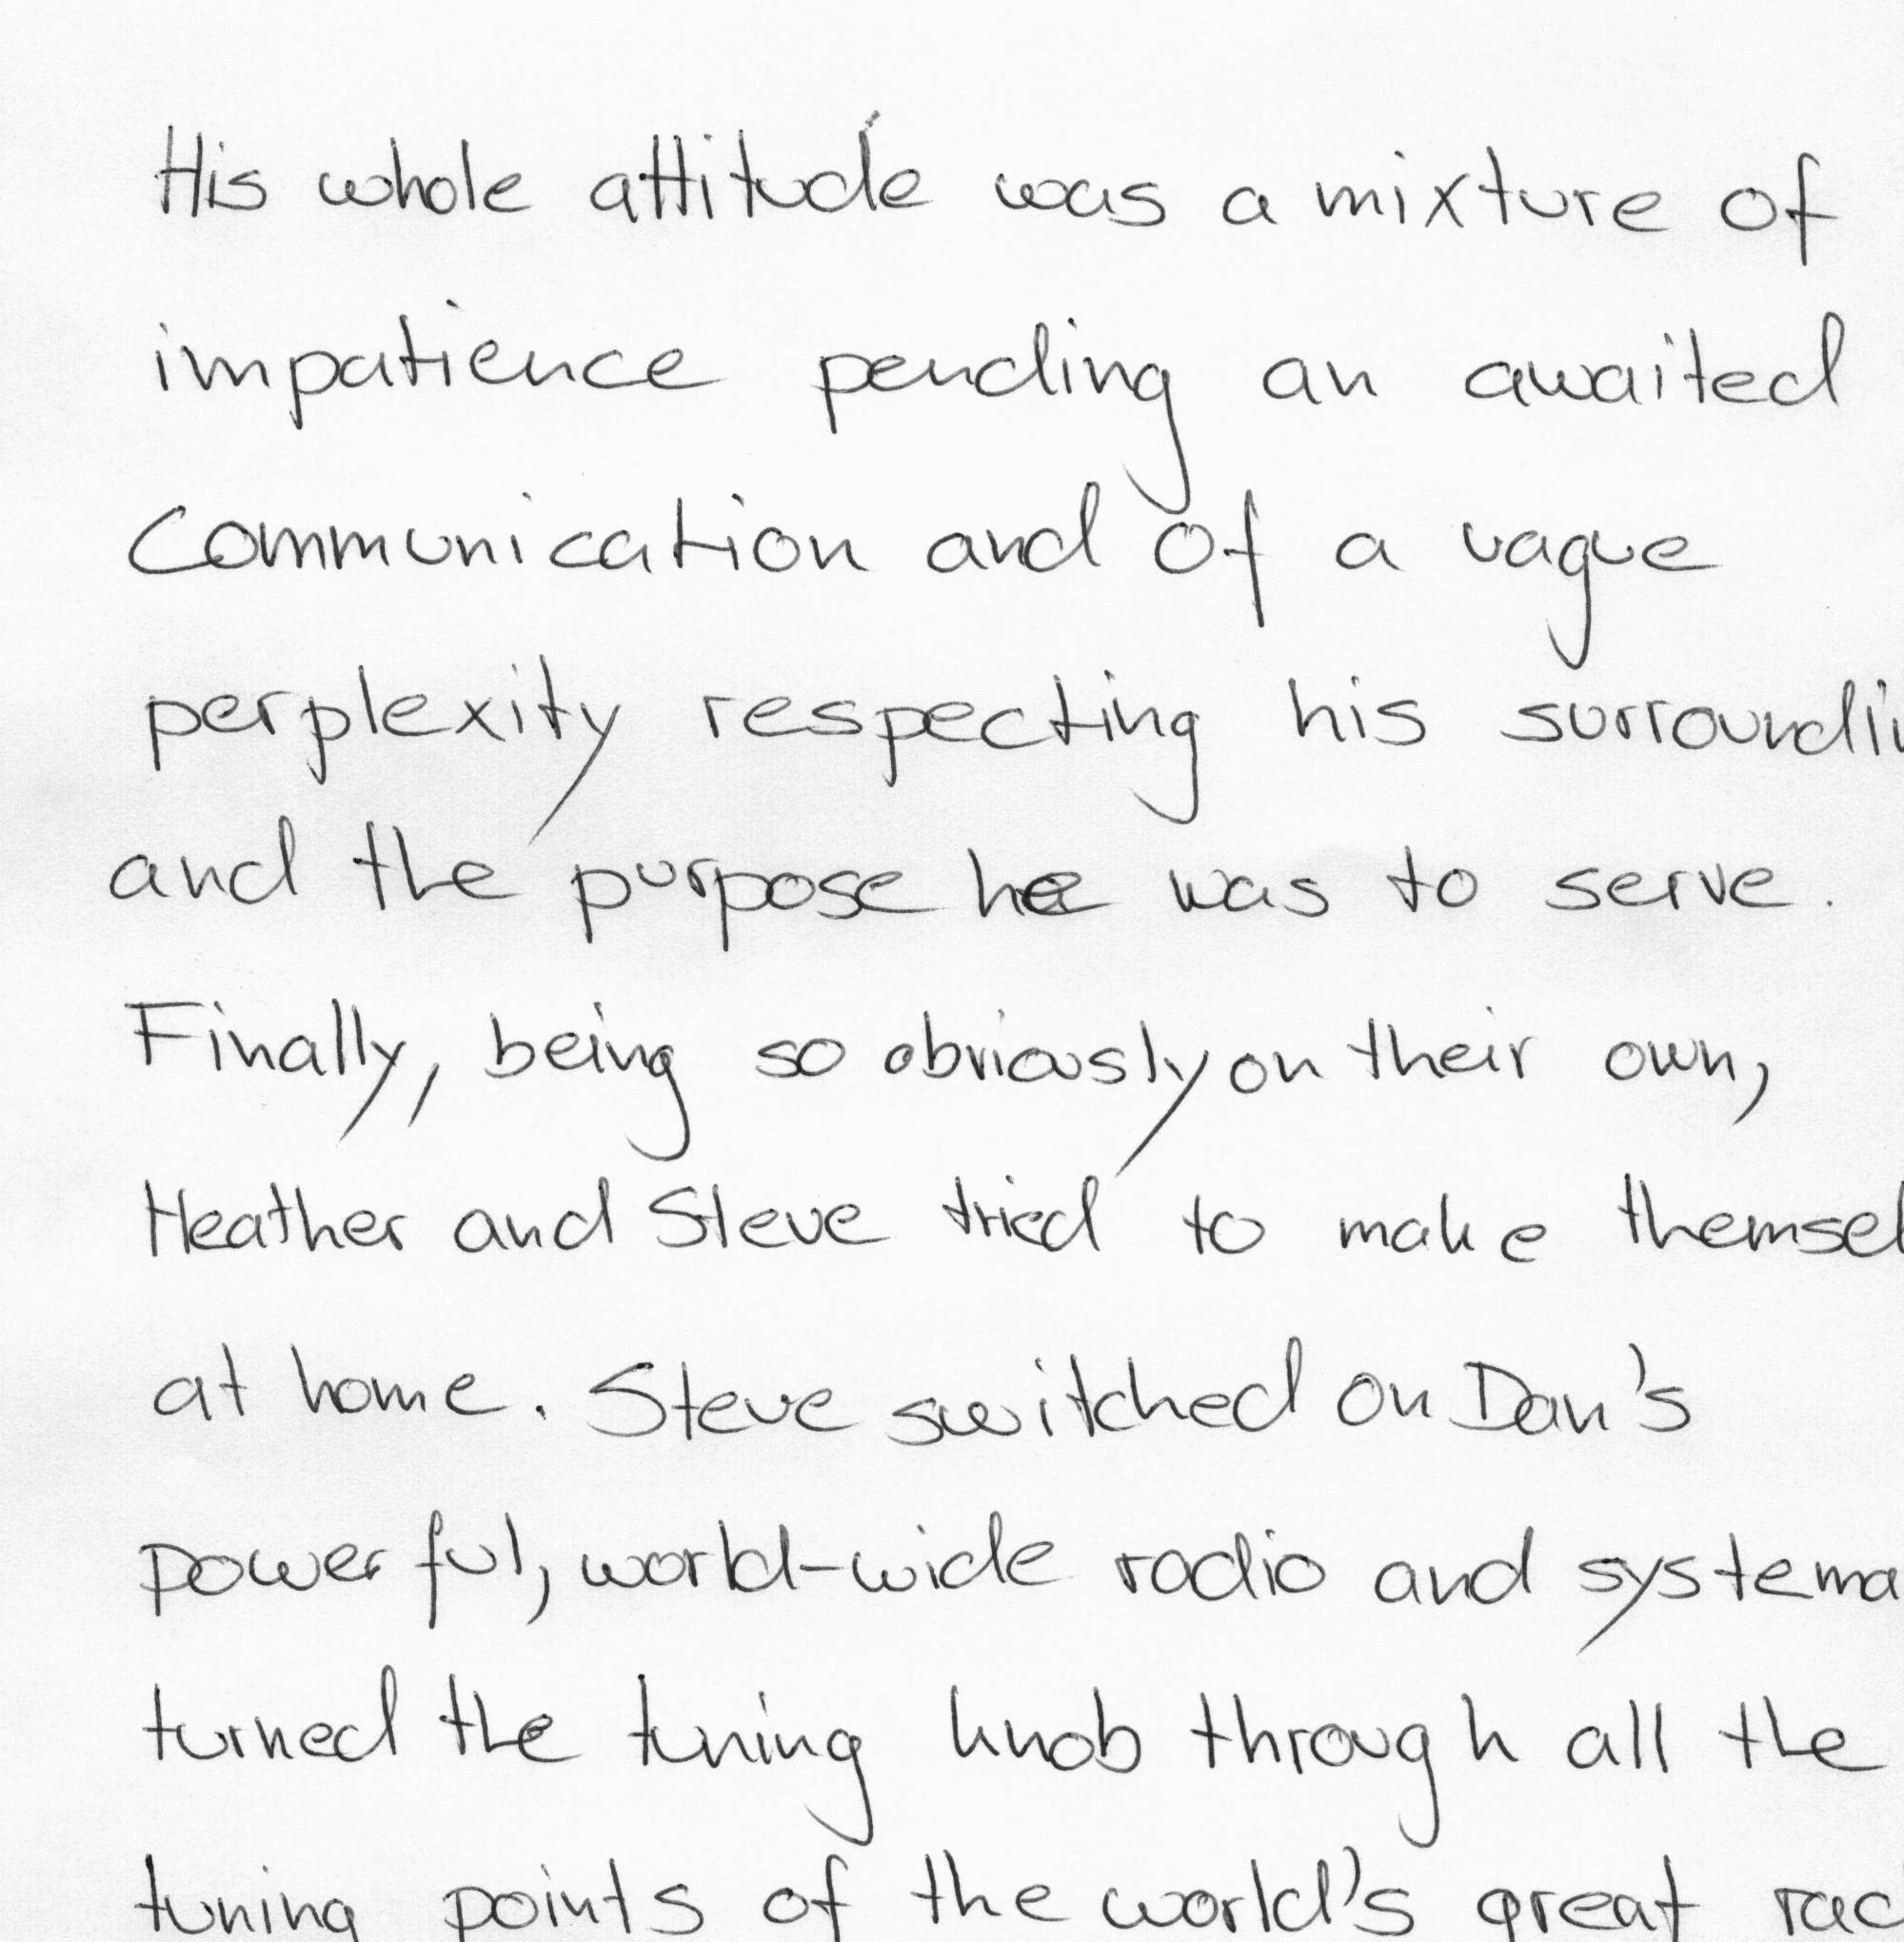 His whole attitude was a mixture of
impatience pending an awaited
Communication and of a vague
perplexity respecting his
and the purpose he was to serve.
Finally, being so obviously on their own,
Heather and Steve tried to make
at home. Steve switched on Dan's
powerful, world-wide radio and
turned the tuning knob through all the
tuning points of the world's great